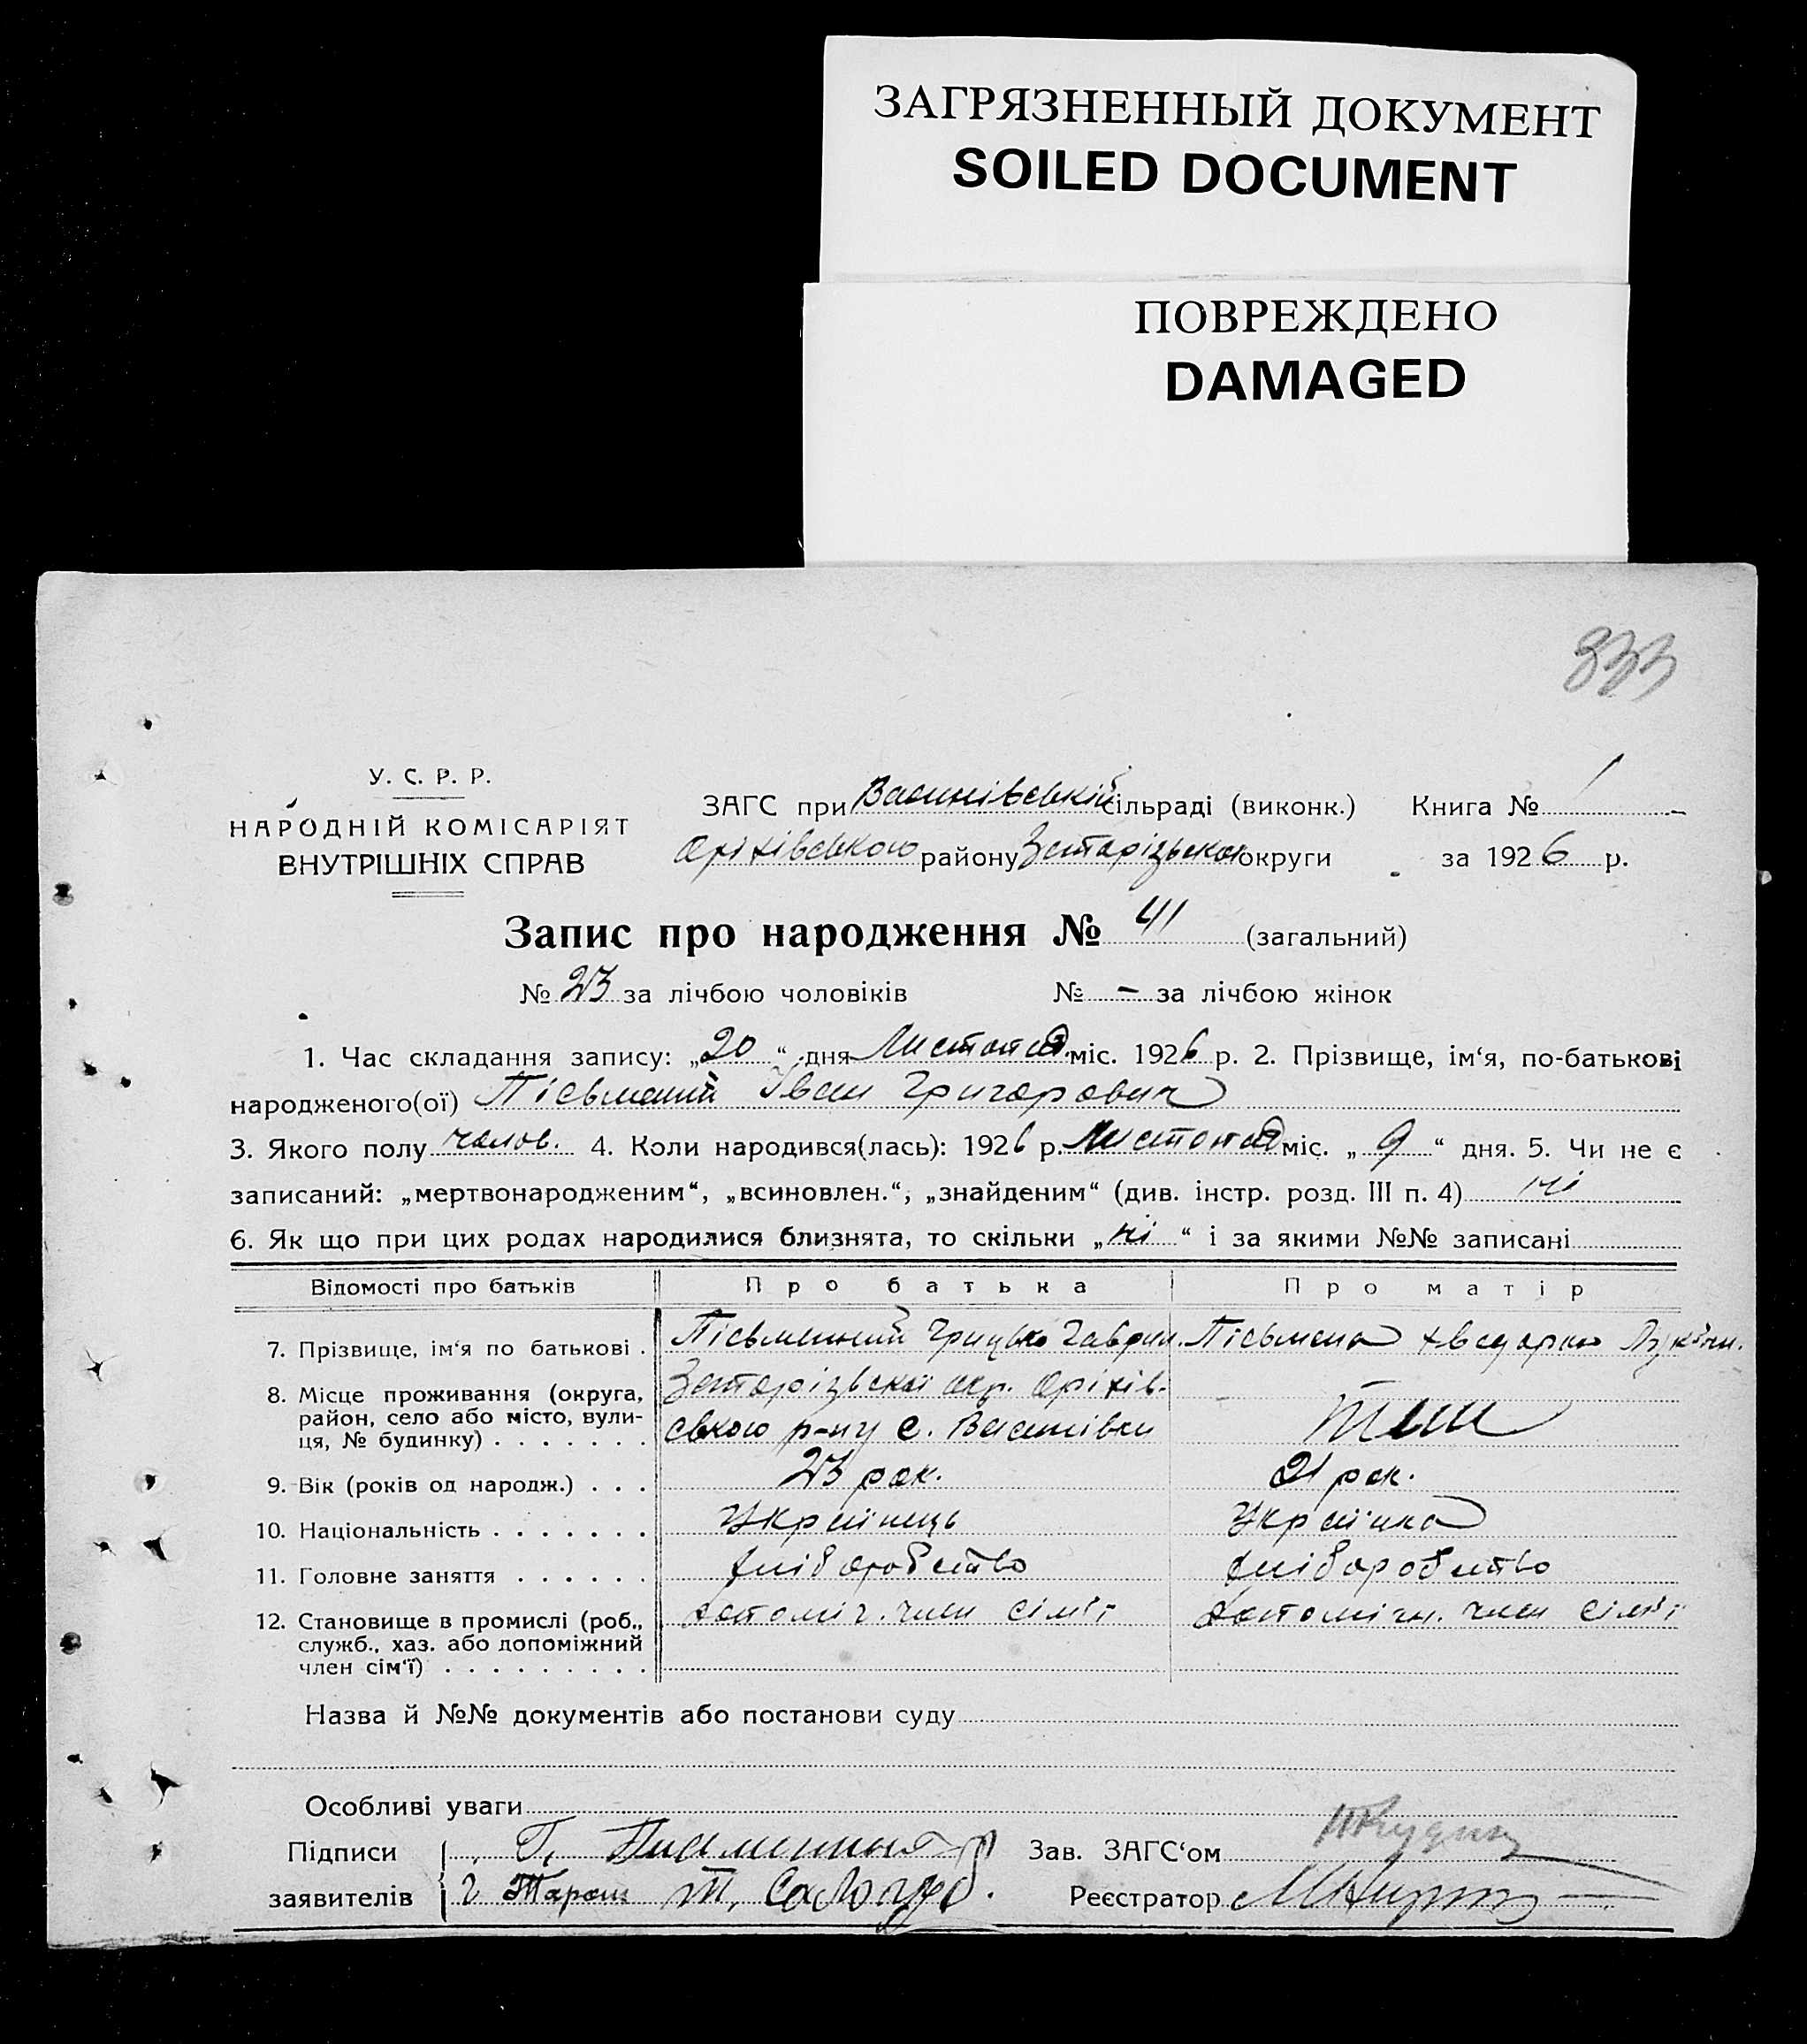 ЗАГРЯЗНЕННЫЙ ДОКУМЕНТ
SOILED DOCUMENT
ПОВРЕЖДЕНО
DAMAGED
833
У. С. Р. Р.
НАРОДНІЙ КОМІСАРІЯТ
ВНУТРІШНІХ СПРАВ
ЗАГС при Васинівській сільраді (виконк.) Книга № 1
Оріхівського району Запорізької округи за 1926 р.
Запис про народження № 41 (загальний)
№ 23 за лічбою чоловіків № - за лічбою жінок
1. Час складання запису: „20“ дня Листопад міс. 1926 р. 2. Прізвище, ім‘я, по-батькові
народженого(ої) Пісьмений Іван Григорович
3. Якого полу чолов. 4. Коли народився(лась): 1926 р. Листопад міс. „9“ дня. 5. Чи не є
записаний: „мертвонародженим“, „всиновлен.“, „знайденим“ (див. інстр. розд. III п. 4) ні
6. Як що при цих родах народилися близнята, то скільки „ні“ і за якими №№ записані
Відомості про батьків Про батька Про матір
7. Прізвище, ім‘я по батькові . Пісьменний Грицько Гаврил. Пісьмена
8. Місце проживання (округа, Запорізької окр. Оріхів-
район, село або місто, вули- ського р-ну с. Васинівки Теж
ця, № будинку) . . . . . . .
9. Вік (років од народж.) . . . 23 рок. 21 рок.
10. Національність . . . . . . . Українець Українка
11. Головне заняття . . . . . . хліборобство хліборобство
12. Становище в промислі (роб., допоміч. член сім'ї допомічн. член сім'ї
служб., хаз. або допоміжний
член сім‘ї) . . . . . . . . .
Назва й №№ документів або постанови суду
Особливі уваги
Підписи Г. Зав. ЗАГС‘ом
заявителів Т. Сологуб. Реєстратор